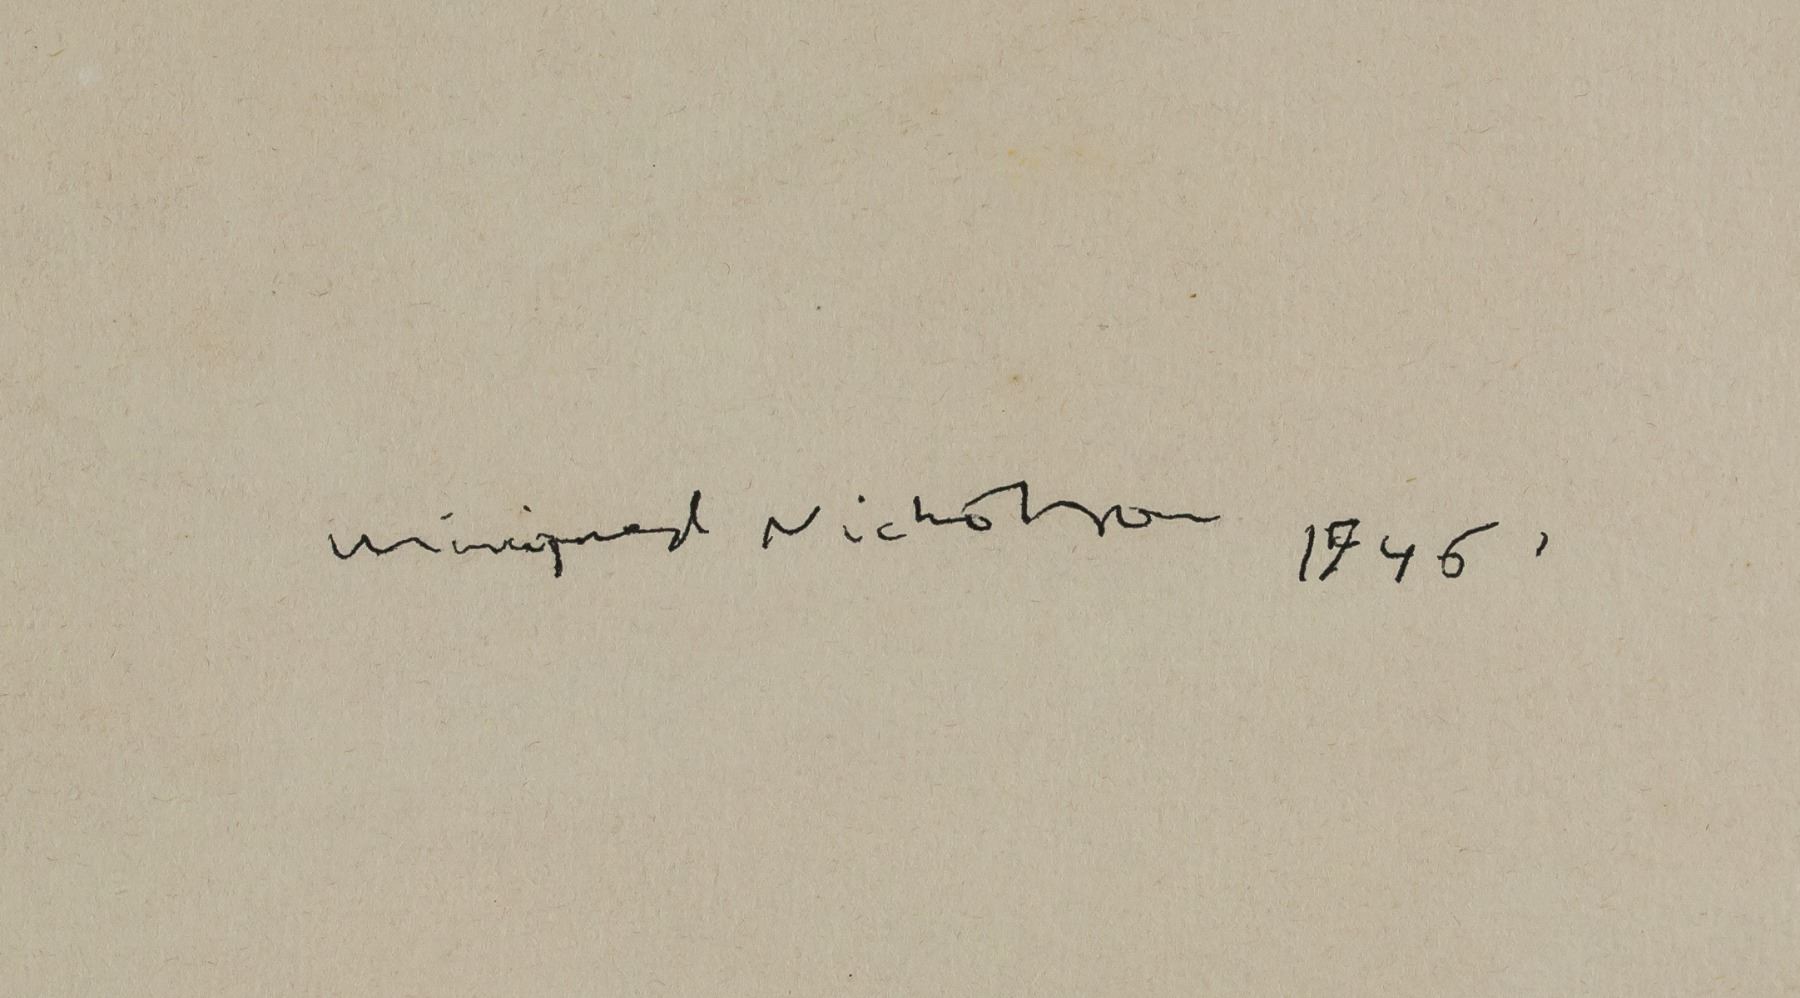 Winifred Nicholson 1945.